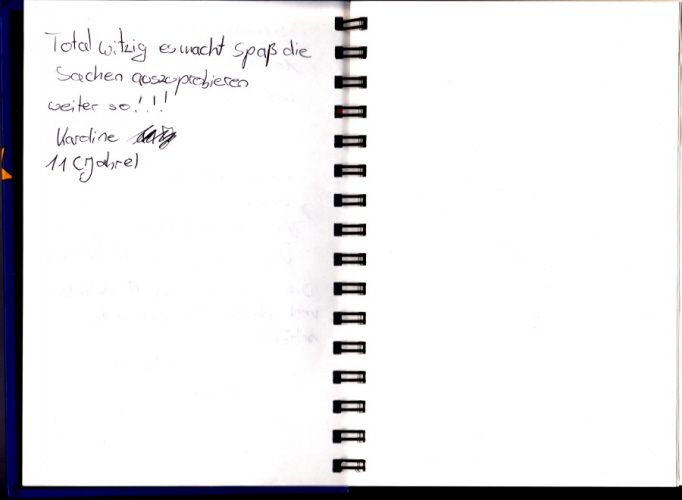 Total witzig es macht Spaß die
Sachen auszoprobieren
weiter so!!!
Karoline
11 (Jahre)